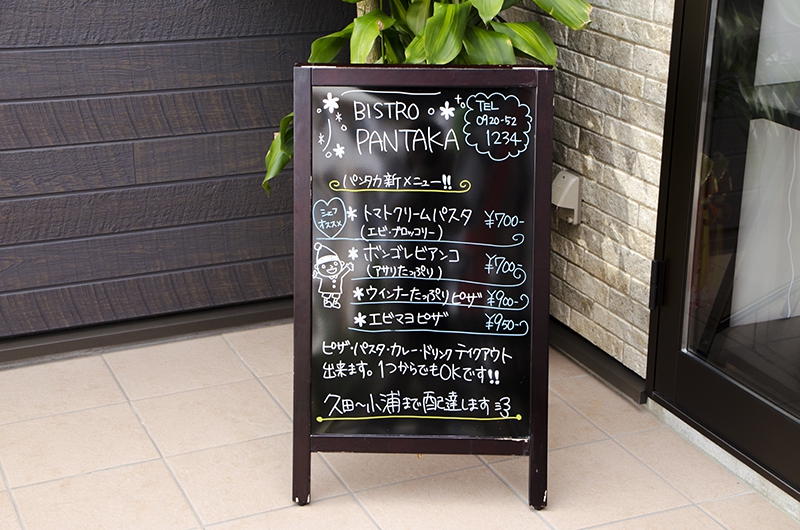 BISTRO
PANTAKA
TEL
0920-52
1234
パンタカ新メニュー!!
シェフ
オススメ
*トマトクリームパスタ ¥700-
(エビ・ブロッコリー)
*ボンゴレビアンコ ¥700
(アサリたっぷり)
*ウインナーたっぷりピザ ¥900-
*エビマヨピザ ¥950-
ピザ・パスタ・カレー・ドリンクテイクアウト
出来ます。1つからでもOKです!!
久田〜小浦まで配達します